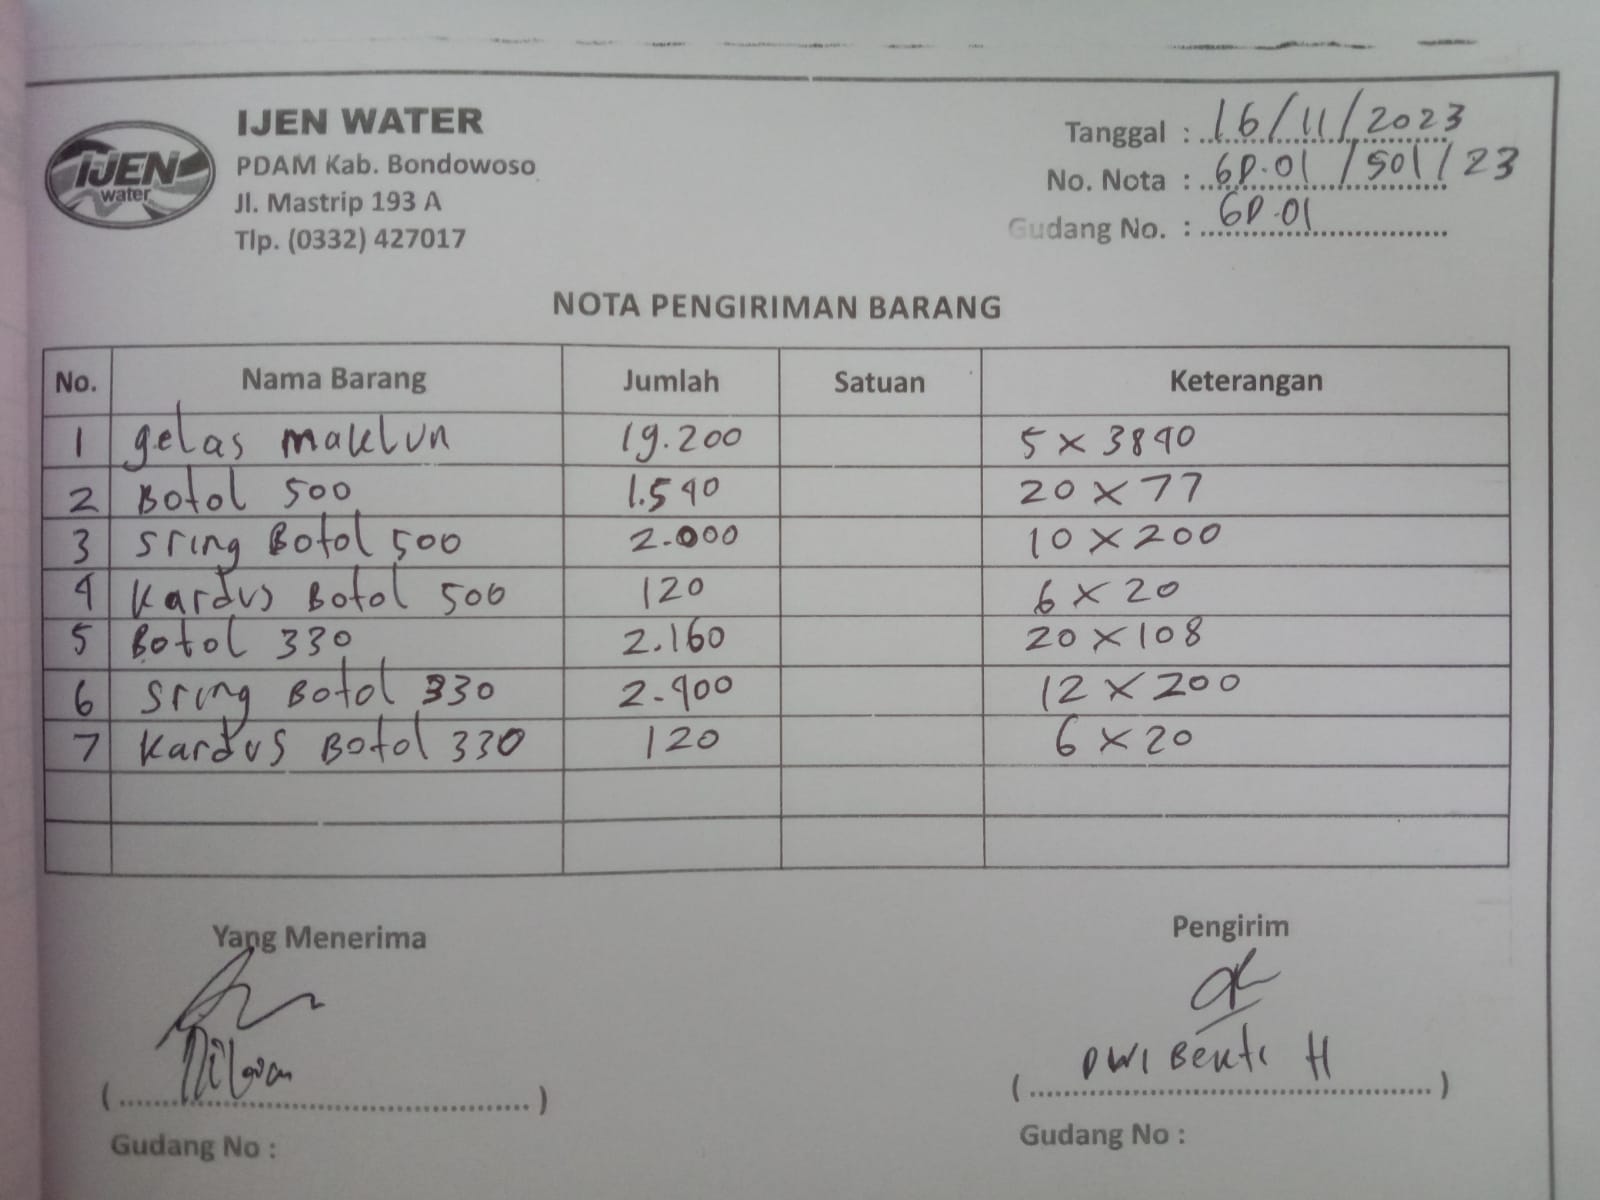 IJEN WATER
PDAM Kab. Bondowoso
Jl. Mastrip 193 A
Tlp. (0332) 427017
IJEN
water
Tanggal : 16/11/2023
No. Nota : GD.01/501/23
Gudang No. : GD.01
NOTA PENGIRIMAN BARANG
No. Nama Barang Jumlah Satuan Keterangan
1 gelas maklun 19.200 5 x 3840
2 Botol 500 1.540 20 x 77
3 Sring Botol 500 2.000 10 x 200
4 Kardus Botol 500 120 6 x 20
5 Botol 330 2.160 20 x 108
6 Sring Botol 330 2.400 12 x 200
7 Kardus Botol 330 120 6 x 20
Yang Menerima
Pengirim
DWI Bekti H
(..............................)
(..............................)
Gudang No :
Gudang No :